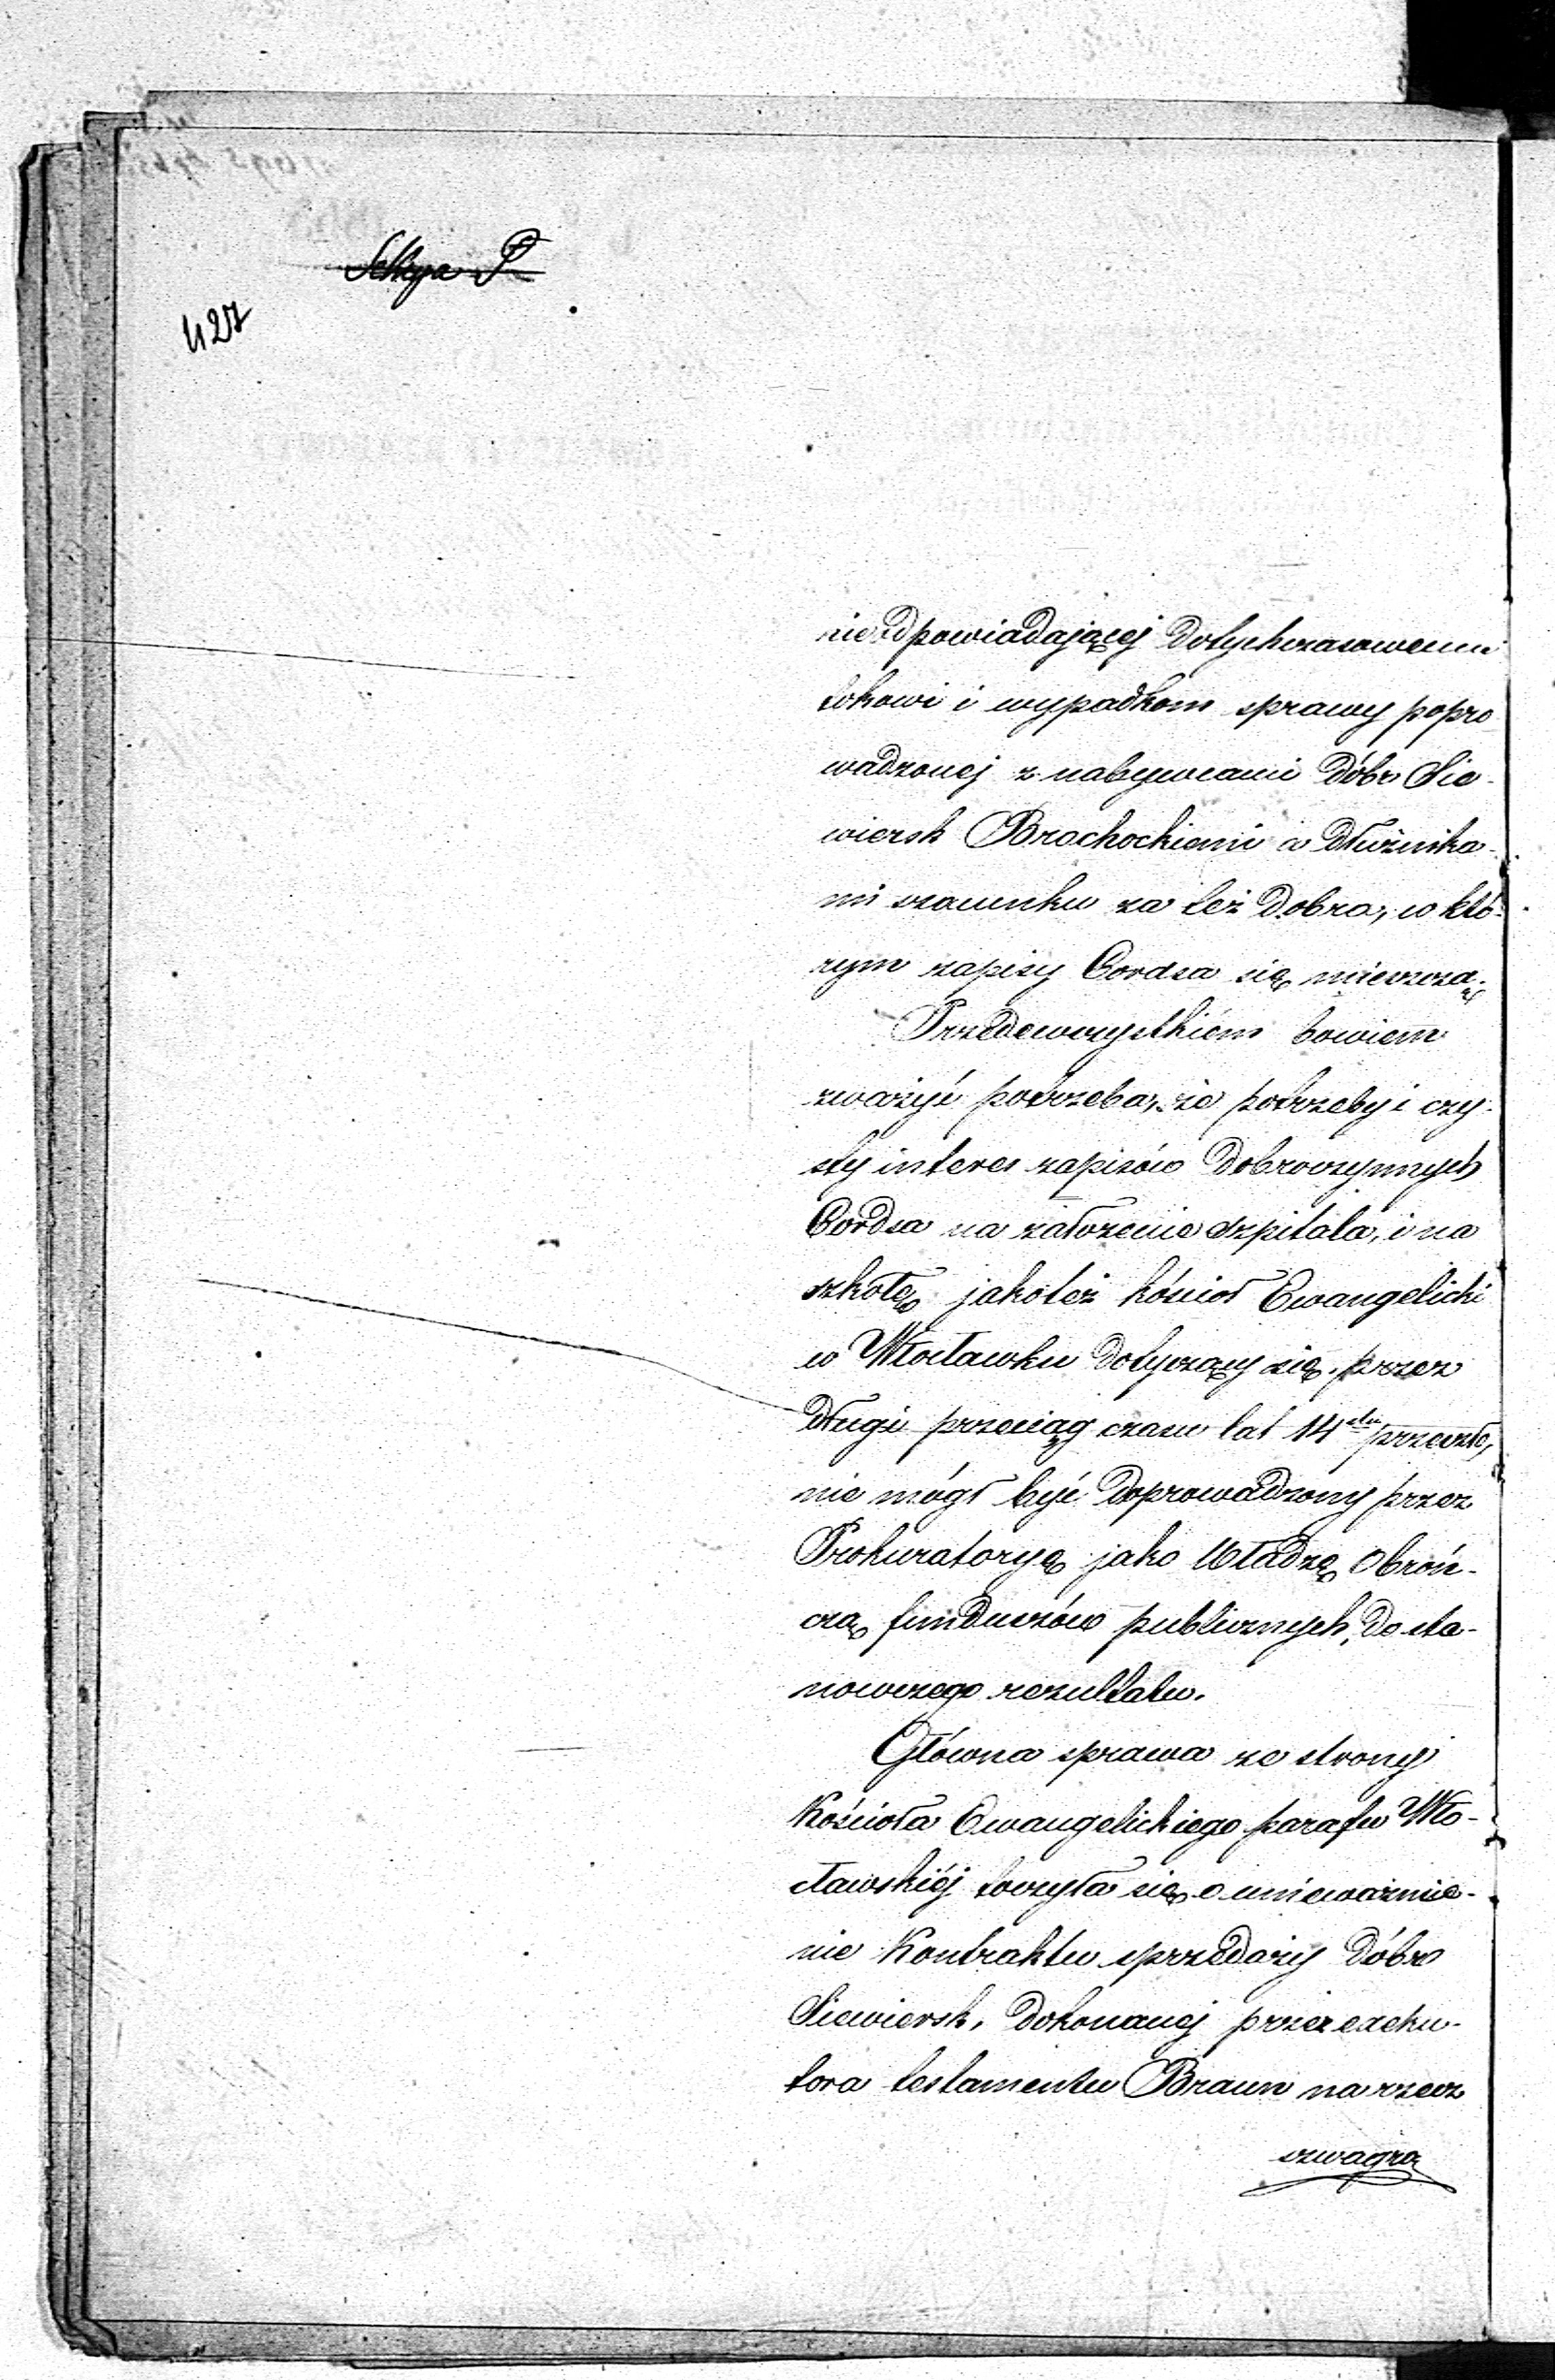 Sekcya P
427
nieodpowiadającej dotychczasowemu
tokowi i wypadkom sprawy popro
wadzonej z nabywcami Dóbr Sie-
wiersk Brochockiemi a dłużnika-
mi szacunku za też Dobra, w któ-
rym zapisy Cordsa się mieszczą.
Przedewszystkiém bowiem
zważyć potrzeba, że potrzeby i czy-
sty interes zapisów Dobroczynnych
Cordsa na założenie szpitala, i na
szkołę jakoteż kościoł Ewangelicki
w Włocławku dotyczący się, przez
długi przeciąg czasu lat 14stu przeszło,
nie mógł być doprowadzony przez
Prokuratoryę jako Władzę Obroń-
czą funduszów publicznych, do sta-
nowczego rezultatu.
Główna sprawa ze strony
Kościoła Ewangelickiego parafii Wło-
cławskiéj toczyła się o unieważnie-
nie Kontraktu sprzedaży Dóbr
Siewiersk, dokonanej przez exeku-
tora testamentu Braun na rzecz
szwagra